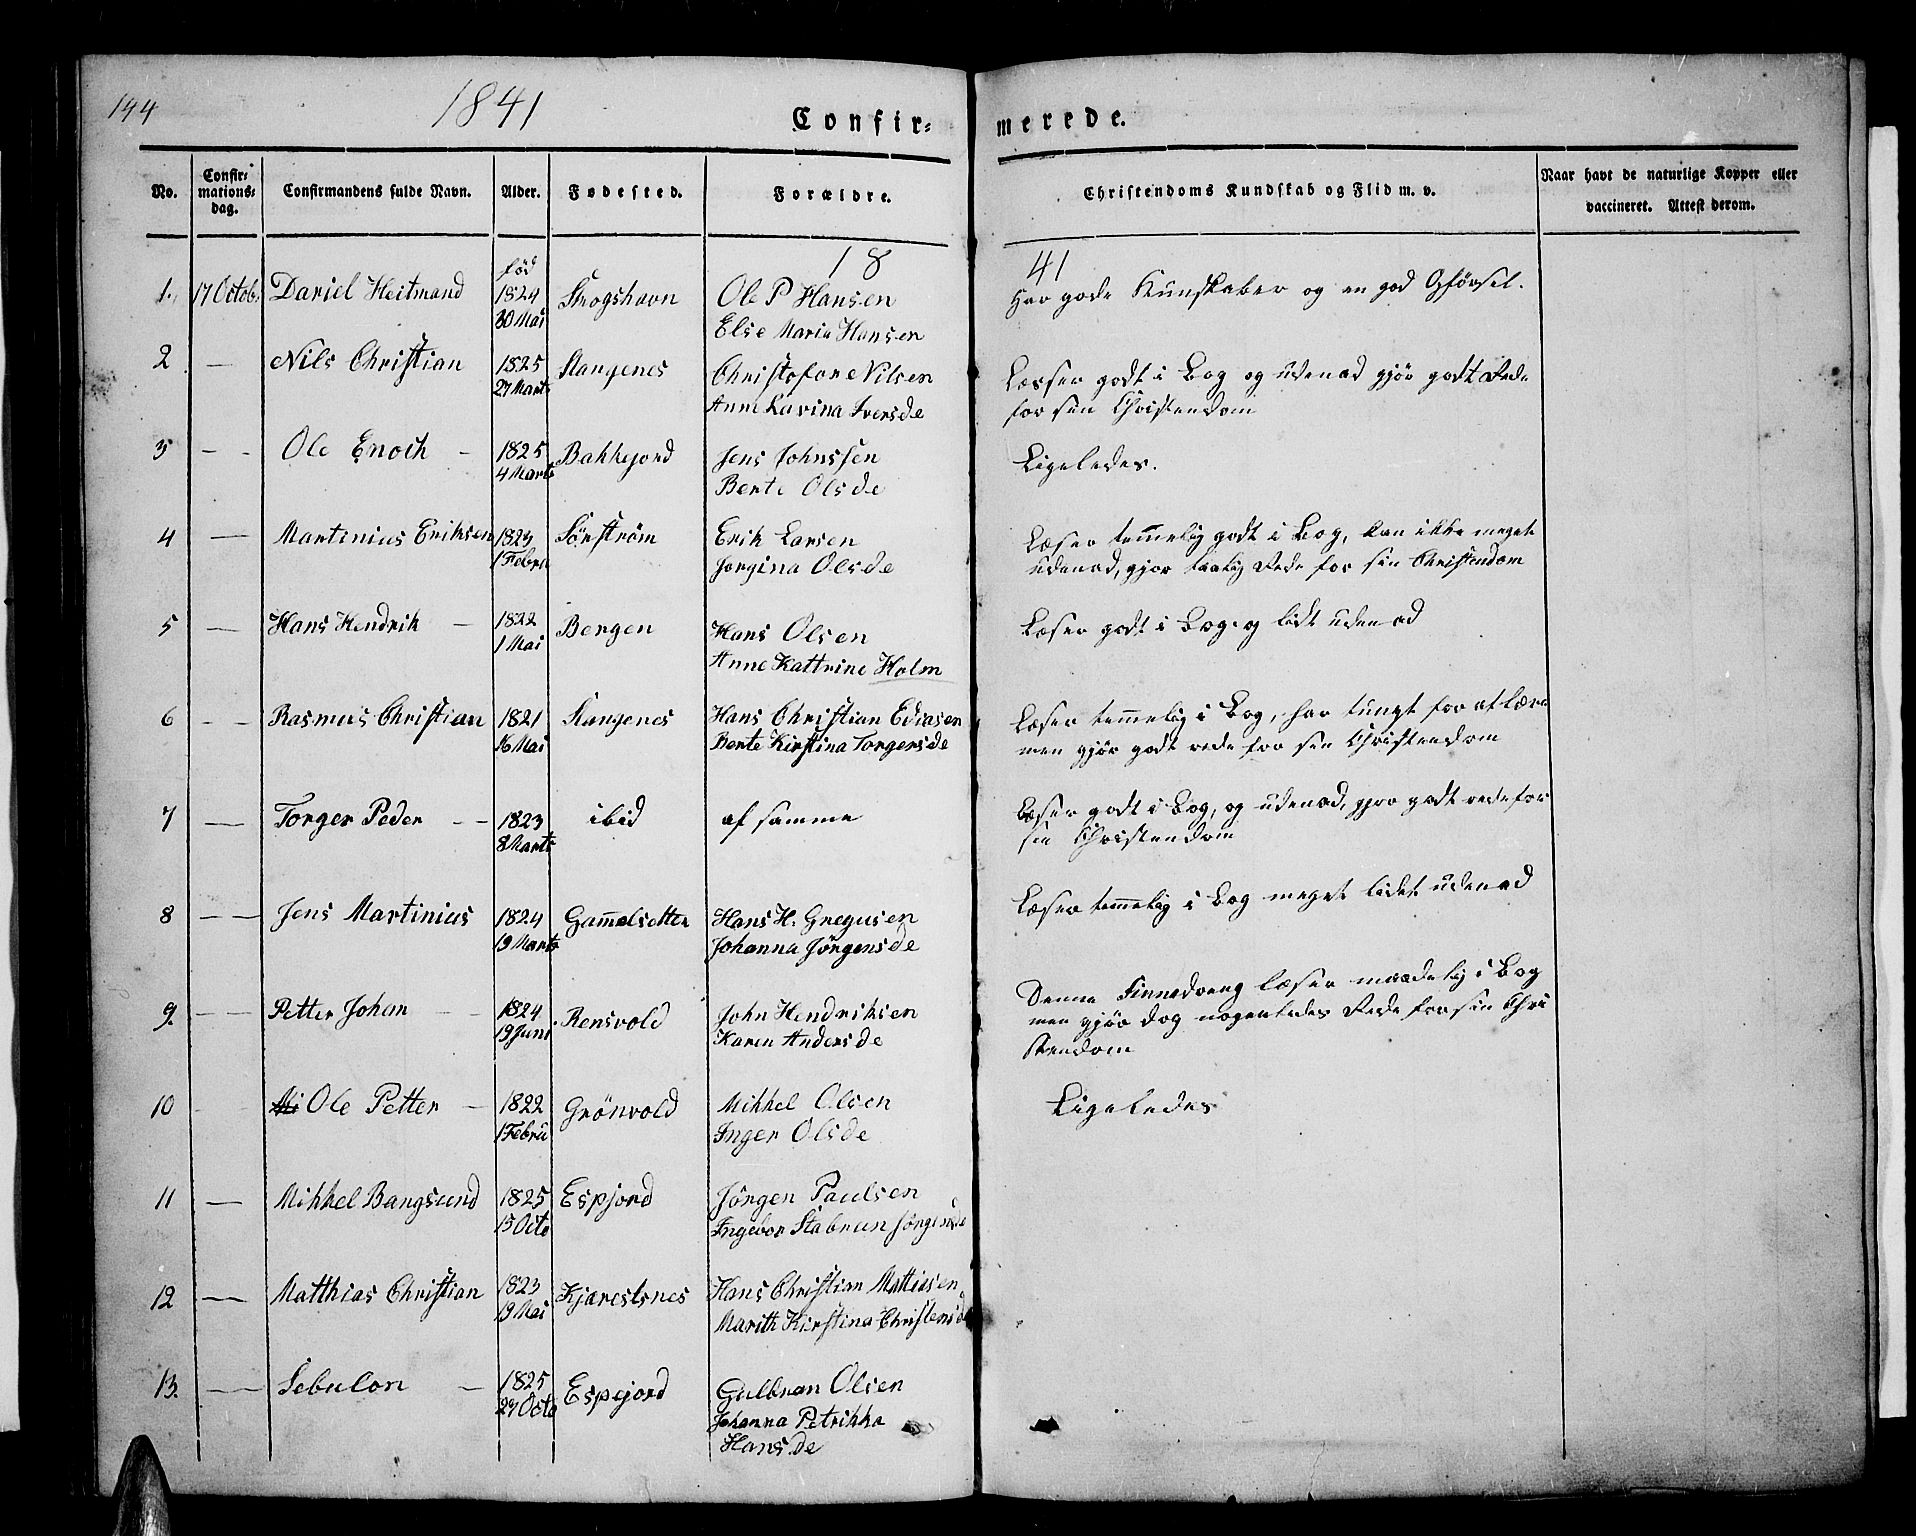 144
1841
Confir=
merede.
No.
Confir=
mations=
dag.
Confirmandens fulde Navn.
Alder.
Fødested.
Forældre.
Christendoms Kundskab og Flid m. v.
Naar havt de naturlige Kopper eller
vaccineret. Attest derom.
18
41
1. 17 Octob. Daniel Heitmand fød 1824 30 Mai Krogshavn Ole P Hansen
Else Maria Hansen
Har gode Kunskaber og en god Opførsel.
2 — Nils Christian 1825 27 Marts Stangenes Christofore Nilsen
Anne Karina Iversde
Læser godt i Bog og udenad gjør godt Rede
for sin Christendom
3 — - Ole Enoch - 1825 4 Marts Bakkejord Jens Johnssen
Berte Olsde
Ligeledes.
4 — Martinius Eriksen 1823 1 Febru Sørstrøm Erik Larsen
Jorgina Olsde
Læser temmelig godt i Bog, kan ikke meget
udenad, gjør taalig Rede for sin Christendom
5 — Hans Hendrik — 1822 1 Mai Bergen Hans Olsen
Anne Kattrine Holm
Læser godt i Bog og lidt udenad
6 - - Rasmus Christian 1821 16 Mai Stangenes Hans Christian Ediasen
Berte Kirstina Torgersde
Læser temmelig i Bog, har tungt for at lære
men gjør godt rede for sin Christendom
7 — Torger Peder - - 1823 8 Marts ibid af samme
Læser godt i Bog, og udenad, gjør godt rede for
sin Christendom
8 — — Jens Martinius 1824 19 Marts Gammelsetter Hans H. Gregusen
Johanna Jörgensde
Læser temmelig i Bog meget lidet udenad
9. — — Petter Johan - - 1824 19 Juni Rensvold John Hendriksen
Karen Andersde
Denne Finnedreng læser maadelig i Bog
men gjør dog nogenledes Rede for sin Chri
stendom
10 - - Ole Petter — 1822 1 Febru Grönvold Mikkel Olsen
Inger Olsde
Ligeledes
11 — Mikkel Bangsund 1825 15 Octo Espjord Jörgen Paulsen
Ingebor Stabrun Jörgensde
12 — Matthias Christian 1823 19 Mai Kjærestsnes Hans Christian Mattiasen
Marith Kirstina Christensd
13. — — Sebulon — 1825 29 Octo Espejord Gulbran Olsen
Johanna Petrikka
Hansde